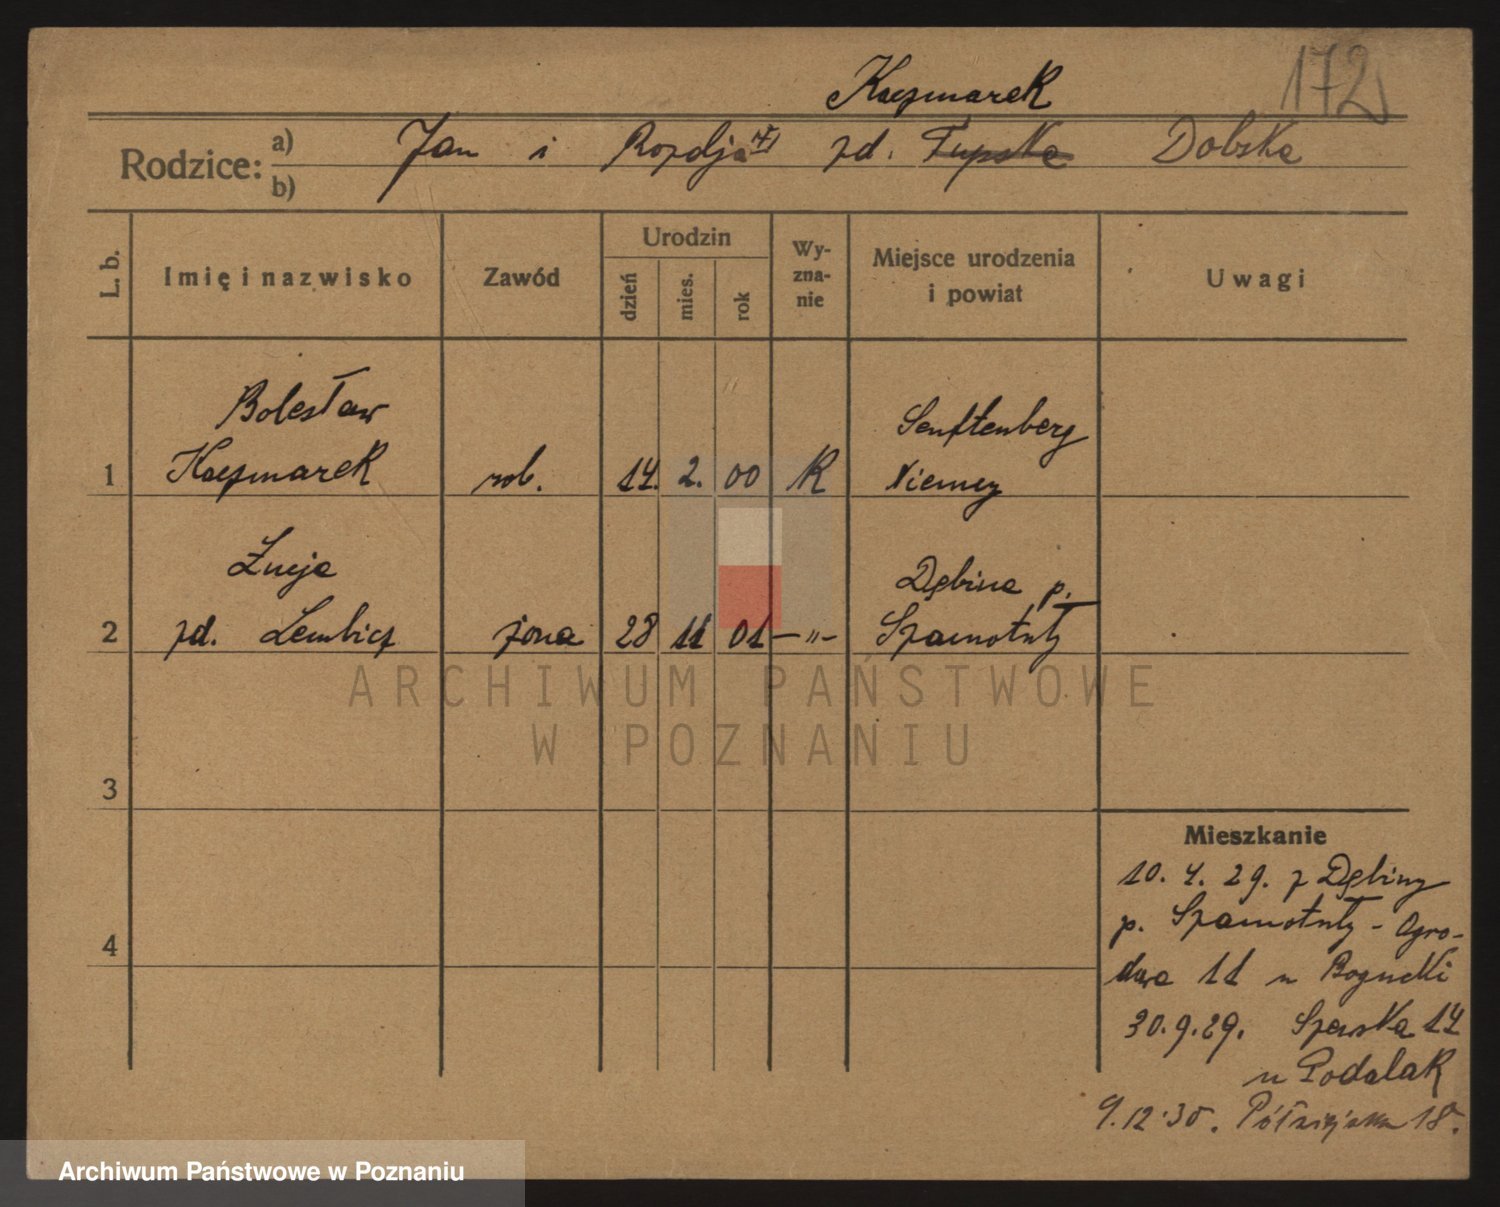 172
Kaczmarek
Rodzice: a) b) Jan i Rozalja zd. Dolska
L. b. Imię i nazwisko Zawód Urodzin dzień mies. rok Wyznanie Miejsce urodzenia i powiat Uwagi
Bolesław Senftenberg
1 Kaczmarek rob. 14. 2. 00 R Niemcy
Łucja Dębina p.
2 zd. Lembicz żona 28 11 01 —"— Szamotuły
3
4
Mieszkanie
10. 4. 29. z Dębiny
p. Szamotuły - Ogro-
dowa 11 u
30. 9. 29. 14
u Podolak
9. 12. 30. 18.
ARCHIWUM PAŃSTWOWE
W POZNANIU
Archiwum Państwowe w Poznaniu